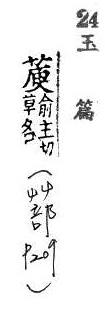 24 玉篇
俞主切
草名
(艸部 P209)